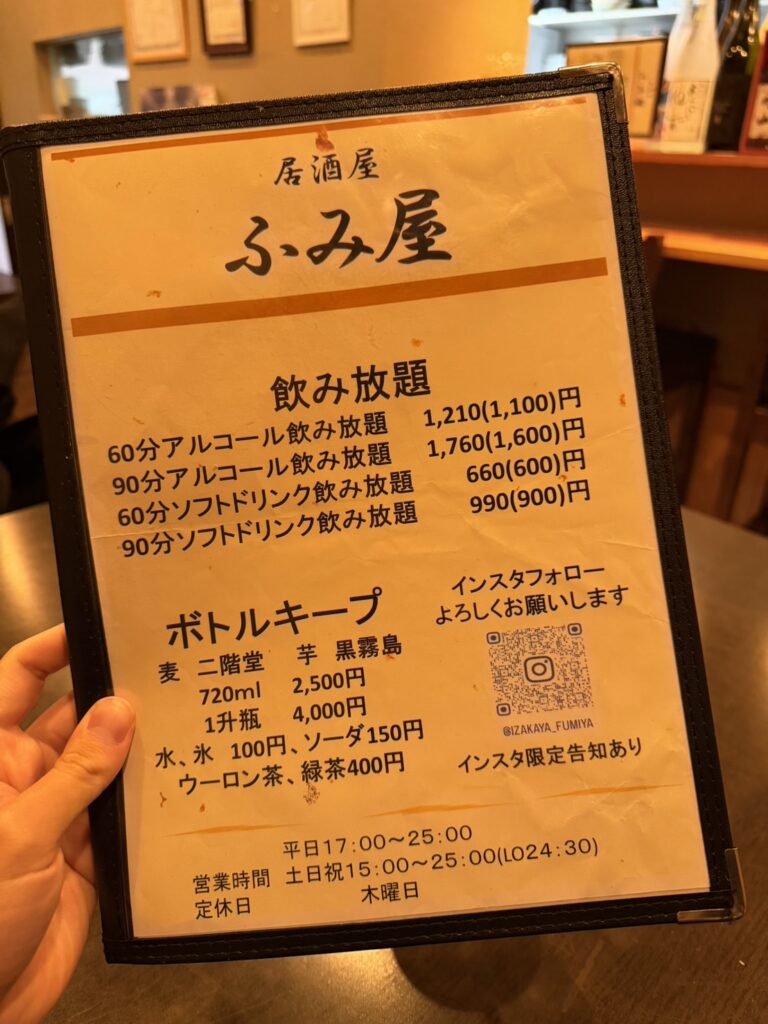 居酒屋
ふみ屋
飲み放題
60分アルコール飲み放題 1,210(1,100)円
90分アルコール飲み放題 1,760(1,600)円
60分ソフトドリンク飲み放題 660(600)円
90分ソフトドリンク飲み放題 990(900)円
ボトルキープ
麦 二階堂 芋 黒霧島
720ml 2,500円
1升瓶 4,000円
水、氷 100円、ソーダ150円
ウーロン茶、緑茶400円
インスタフォロー
よろしくお願いします
@IZAKAYA_FUMIYA
インスタ限定告知あり
平日17:00～25:00
営業時間 土日祝15:00～25:00(LO24:30)
定休日 木曜日